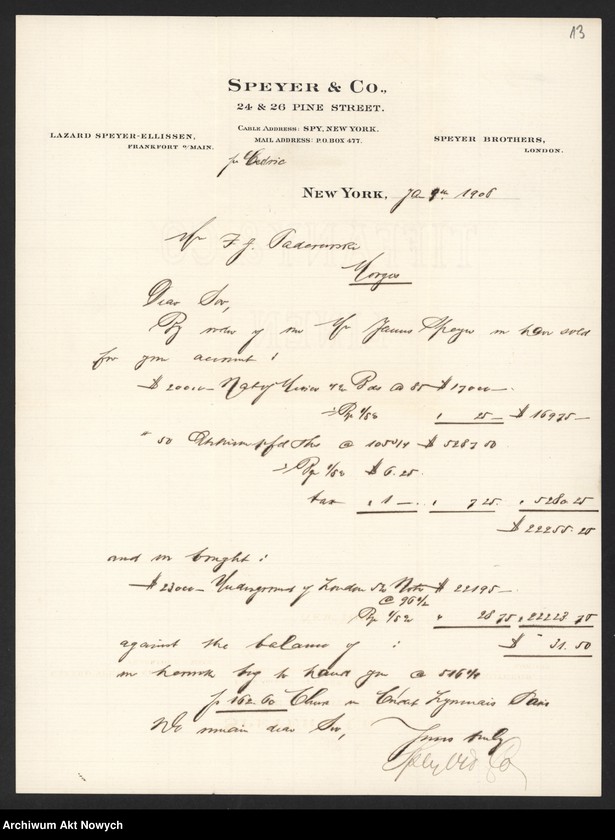 13
SPEYER & CO.,
24 & 26 PINE STREET.
CABLE ADDRESS: SPY, NEW YORK.
MAIL ADDRESS: P.O. BOX 477.
LAZARD SPEYER-ELLISSEN,
FRANKFORT o/MAIN.
SPEYER BROTHERS,
LONDON.
pr Cedric
NEW YORK, Ja 9th 1906
Mr I. J. Paderewski
Morges
Dear Sir,
By order of our Mr James Speyer we have sold
for your account:
$ 20000.— Mexico 4% Bds @ 85 $ 17000.—
1/8% " 25.— $ 16975.—
" 50 Atchison pfd Shs @ 105 3/4 $ 5287 50
1/8% $ 6.25
tax " 1.— " 7 25 " 5280.25
$ 22255.25
and we bought:
$ 23000.— Underground of London 5% Notes $ 22195.—
@ 96 1/2
1/8% " 28 75 " 22223 75
against the balance of : $ 31.50
we herewith beg to hand you @ 516 1/4
fr 162.60 Cheque on Crédit Lyonnais Paris
We remain dear Sir,
Yours truly
Speyer & Co